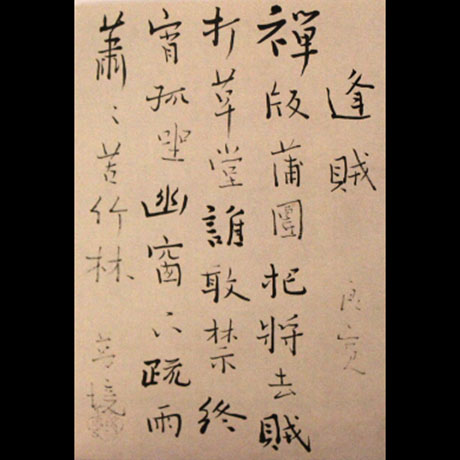 逢賊 良寛
禪版蒲團把將去賊
打草堂誰敢禁終
宵孤坐幽窗下疏雨
蕭々苦竹林